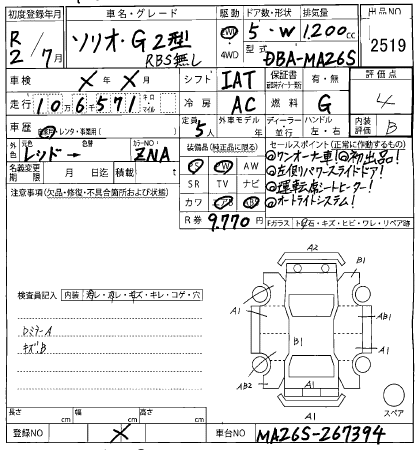 初度登録年月 車名・グレード 駆動 ドア数・形状 排気量 出品NO
R2/7月 ソリオ・G 2型 RBS無し 2WD・4WD 5・W 1,200cc 2519
型式 DBA-MA26S
車検 ×年×月 シフト IAT 保証書 有・無 評価点 4
走行 106571 キロ マイル 冷房 AC 燃料 G ハンドル
車歴 自家用 レンタ・事業用( ) 定員 5人 外車モデル 年 ディーラー・並行 左・右 内装評価 B
外色 レッド→ 色替 カラーNO ZNA 装備品(純正品に限る) セールスポイント(正常に作動するもの)
名義変更期限 月 日迄 積載 PS PW AW
SR TV ナビ
カワ
R券 9,770円
◎ワンオーナー車!◎初出品!
◎左側パワースライドドア!
◎運転席シートヒーター!
◎オートライトシステム!
注意事項(欠品・修復・不具合箇所および状態)
Fガラス ト石・キズ・ヒビ・ワレ・リペア跡
検査員記入 内装 汚レ・スレ・キズ・キレ・コゲ・穴
DミラーA
キズ.B
A2
B1
A1
AB1
B1
A1
AB2
B1
A1
A1
スペア
長さ cm 幅 cm 高さ cm
登録NO × 車台NO MA26S-267394